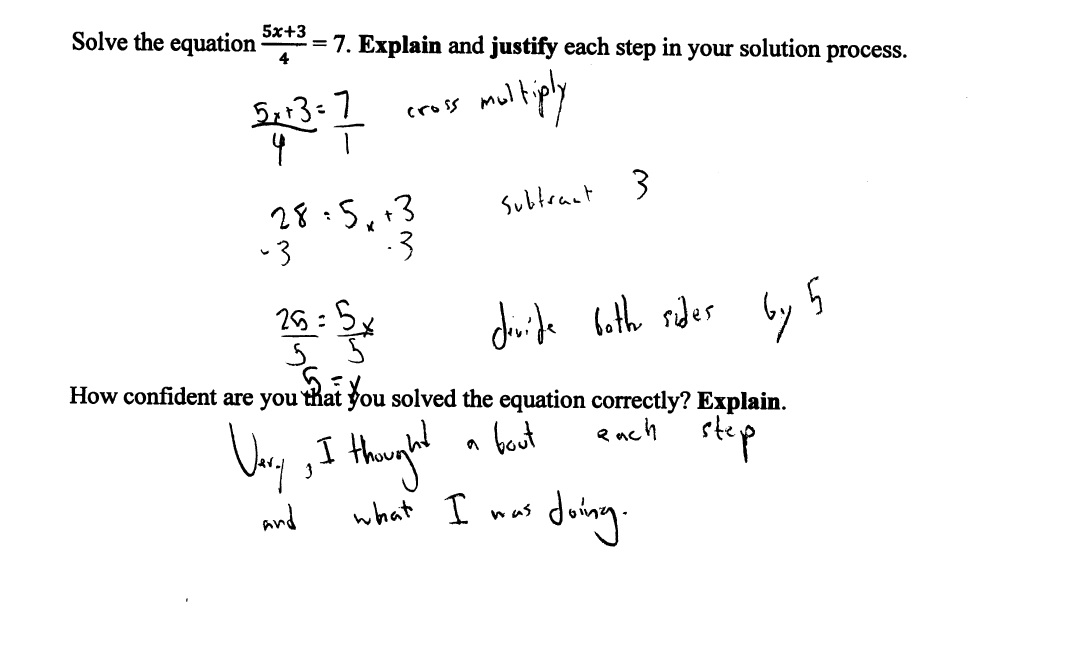 Solve the equation (5x+3)/4 = 7. Explain and justify each step in your solution process.
(5x+3)/4 = 7/1 cross multiply
28 = 5x+3 subtract 3
-3 -3
25/5 = 5x/5 divide both sides by 5
5 = x
How confident are you that you solved the equation correctly? Explain.
Very, I thought about each step
and what I was doing.